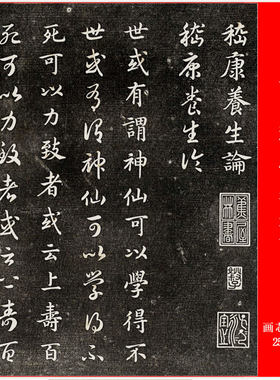 嵇康養生論
嵇康養生論
世或有謂神仙可以學得不
世或有謂神仙可以學得不
死可以力致者或云上壽百
死可以力致者或云上壽百
蕉林書屋
画芯
25